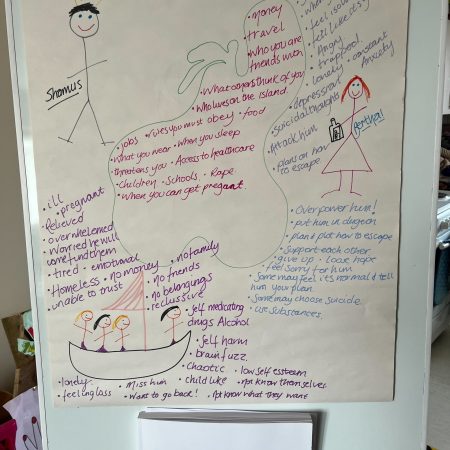 Shamus
• money
• travel
• who you are
friends with
• What others think of you
Who lives on the island.
• jobs • rules you must obey • food
• What you wear • When you sleep
threatens you • Access to healthcare
• Children • Schools • Rape
• Where you can get pregnant.
Angry
trapped
lonely • constant
Anxiety
depression
suicidal thoughts
Attack him
plans on how
to escape
• ill
• pregnant
Relieved
overwhelmed
Worried he will
come find them
• tired • emotional
Homeless • No money
• unable to trust
• no family
• no friends
• no belongings
reclussive
• self medicating
drugs Alcohol
• self harm
• brain fuzz.
• Chaotic • low self esstream
• child like • not know themselves
lonely • Miss him
• feeling loss • Want to go back! • Not know what they want
• Overpower him!
• put him in dungeon
• plan & plot how to escape
• Support each other
• give up • loose hope
feel sorry for him
• Some may feel its normal & tell
him your plan.
• Some may choose suicide
• use substances.